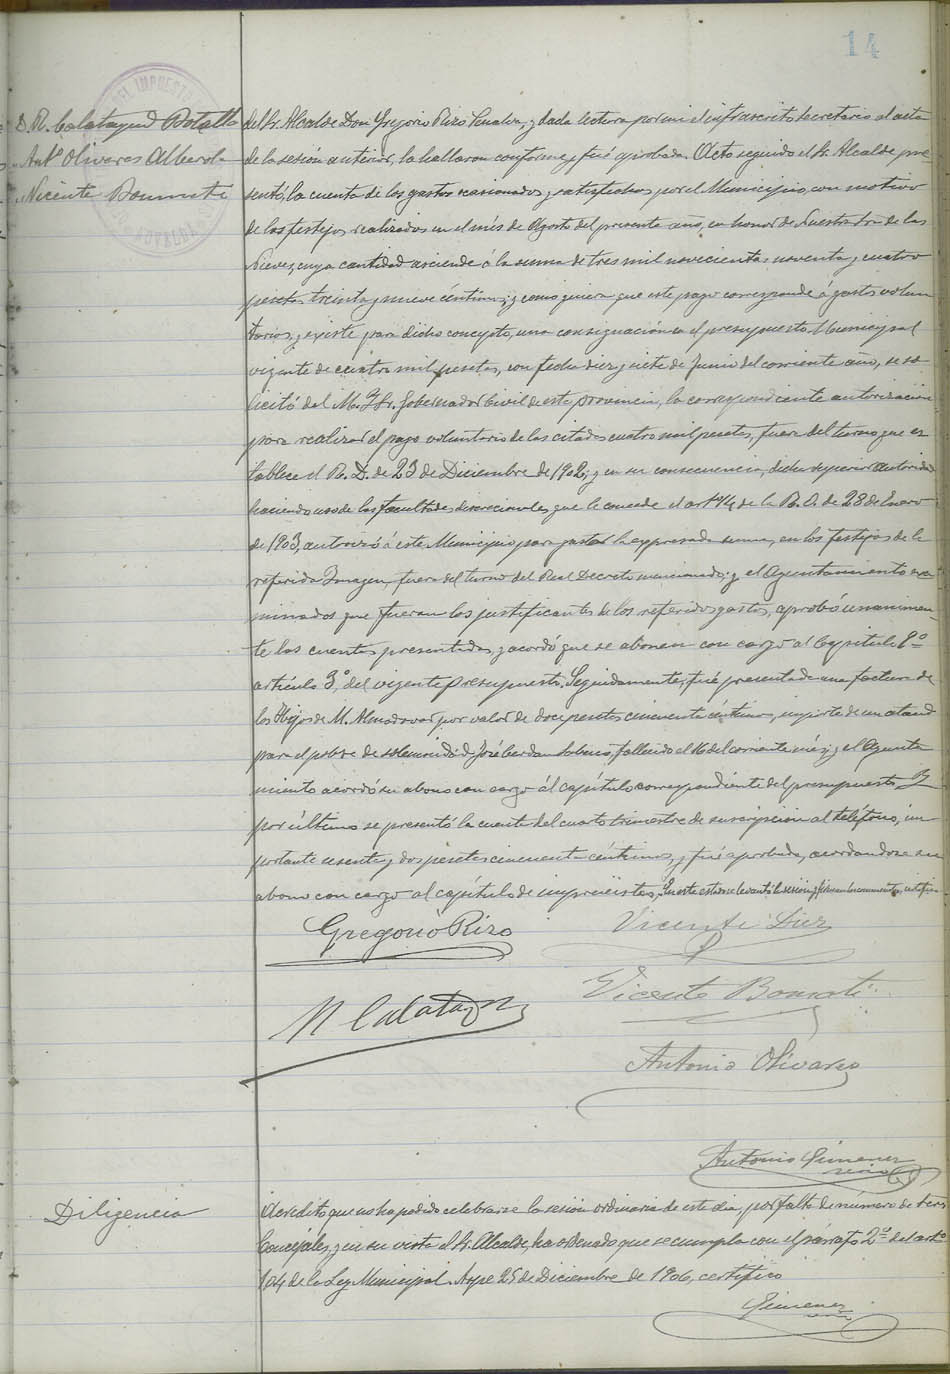 14
D. R. Calatayud Botella
" Antº Olivares Alberola
" Vicente Bonmati
del Sr. Alcalde Don Gregorio Rizo Penalva, y dada lectura por mi el infrascrito secretario al acta
de la sesión anterior, la hallaron conforme y fué aprobada. Acto seguido el Sr. Alcalde pre-
sentó, la cuenta de los gastos ocasionados y satisfechos por el Municipio, con motivo
de los festejos realizados en el mes de Agosto del presente año, en honor de Nuestra Sra de las
Nieves, cuya cantidad asciende á la suma de tres mil novecientas noventa y cuatro
pesetas treinta y nueve céntimos; y como quiera que este pago corresponde á gastos volun
tarios, y existe para dicho concepto, una consignación en el presupuesto Municipal
vigente de cuatro mil pesetas, con fecha diez y siete de Junio del corriente año, se so
licitó del M. Y Sr. Gobernador Civil de esta provincia, la correspondiente autorización
para realizar el pago voluntario de las citadas cuatro mil pesetas, fuera del turno que es
tablece el R. D. de 23 de Diciembre de 1902; y en su consecuencia, dicha superior autoridad
haciendo uso de las facultades discrecionales que le concede el artº 14 de la R. O. de 28 de Enero
de 1903, autorizó á este Municipio para gastar la expresada suma, en los festejos de la
referida Imagen, fuera del turno del Real Decreto mencionado; y el Ayuntamiento exa
minados que fueron los justificantes de los referidos gastos, aprobó unanimemen
te las cuentas presentadas, y acordó que se abonen con cargo al Capitulo 1º
artículo 3º, del vigente presupuesto. Seguidamente, fué presentada una factura de
los Hijos de M. Almodovar por valor de doce pesetas cincuenta céntimos, importe de un ataud
para el pobre de solemnidad José Cerdan, fallecido el 16 del corriente mes; y el Ayunta
miento acordó su abono con cargo ál capítulo correspondiente del presupuesto. Y
por último se presentó la cuenta del cuarto trimestre de suscripción al teléfono, im
portante sesenta y dos pesetas cincuenta céntimos, y fué aprobada, acordandose su
abono con cargo al capítulo de imprevistos. En este estado se levantó la sesión y firman los concurrentes, certifico
Gregorio Rizo
Vicente Diez
Vicente Bonmati
R Calatayud
Antonio Olivares
Antonio Gimenez
srio
Diligencia
Acredito que no ha podido celebrarse la sesión ordinaria de este dia, por falta de número de Sres
Concejales, y en su vista el Sr. Alcalde, ha ordenado que se cumpla con el párrafo 2º del artº
104 de la Ley Municipal. Aspe 25 de Diciembre de 1906, certifico
Gimenez
srio